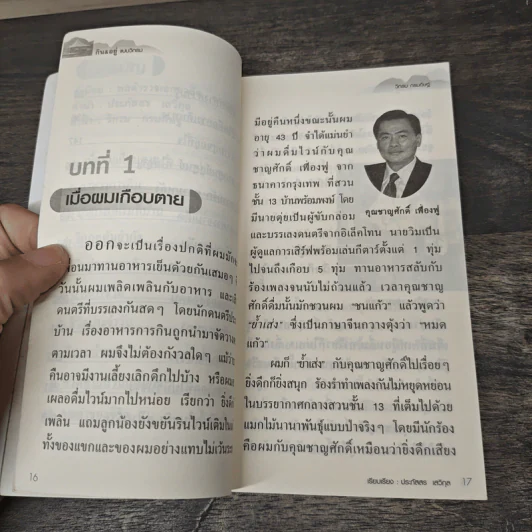 กินและอยู่ แบบวิกรม
บทที่ 1
เมื่อผมเกือบตาย
ออกจะเป็นเรื่องปกติที่ผมมัก
เพื่อนมาทานอาหารเย็นด้วยกันเสมอๆ
วันนั้นผมเพลิดเพลินกับอาหาร และเสี
ดนตรีที่บรรเลงกันสดๆ โดยนักดนตรีประ
บ้าน เรื่องอาหารการกินถูกนำมาจัดวาง
ตามเวลา ผมจึงไม่ต้องกังวลใดๆ แม้ว่า
คืนอาจมีงานเลี้ยงเลิกดึกไปบ้าง หรือผม
เผลอดื่มไวน์มากไปหน่อย เรียกว่า ยิ่งดึก
เพลิน แถมลูกน้องยังขยันรินไวน์เติมใน
ทั้งของแขกและของผมอย่างแทบไม่เว้นระ
16
วิกรม กรมดิษฐ์
มีอยู่คืนหนึ่งขณะนั้นผม
อายุ 43 ปี จำได้แม่นยำ
ว่าผมดื่มไวน์กับคุณ
ชาญศักดิ์ เฟื่องฟู จาก
ธนาคารกรุงเทพ ที่สวน
ชั้น 13 บ้านพร้อมพงษ์ โดย
มีนายตุ่ยเป็นผู้ขับกล่อม
คุณชาญศักดิ์ เฟื่องฟู
และบรรเลงดนตรีจากอิเล็คโทน นายวิมเป็น
ผู้ดูแลการเสิร์ฟพร้อมเล่นกีตาร์ตั้งแต่ 1 ทุ่ม
ไปจนถึงเกือบ 5 ทุ่ม ทานอาหารสลับกับ
ร้องเพลงจนนับไม่ถ้วนแล้ว เวลาคุณชาญ
ศักดิ์ดื่มนั้นมักชวนผม "ชนแก้ว" แล้วพูดว่า
"ย้ำเส่ง" ซึ่งเป็นภาษาจีนกวางตุ้งว่า "หมด
แก้ว"
ผมก็ "ย้ำเส่ง" กับคุณชาญศักดิ์ไปเรื่อยๆ
ยิ่งดึกก็ยิ่งสนุก ร้องรำทำเพลงกันไม่หยุดหย่อน
ในบรรยากาศกลางสวนชั้น 13 ที่เต็มไปด้วย
แมกไม้นานาพันธุ์แบบป่าจริงๆ โดยมีนักร้อง
คือผมกับคุณชาญศักดิ์เหมือนว่ายิ่งดึกเสียง
เรียบเรียง : ประภัสสร เสวิกุล
17